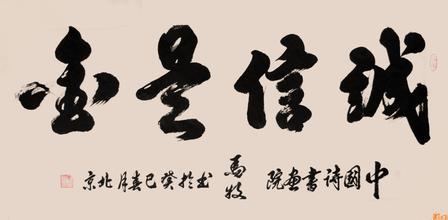 誠信是金
中國詩書畫院
馬牧
书於癸巳春月北京